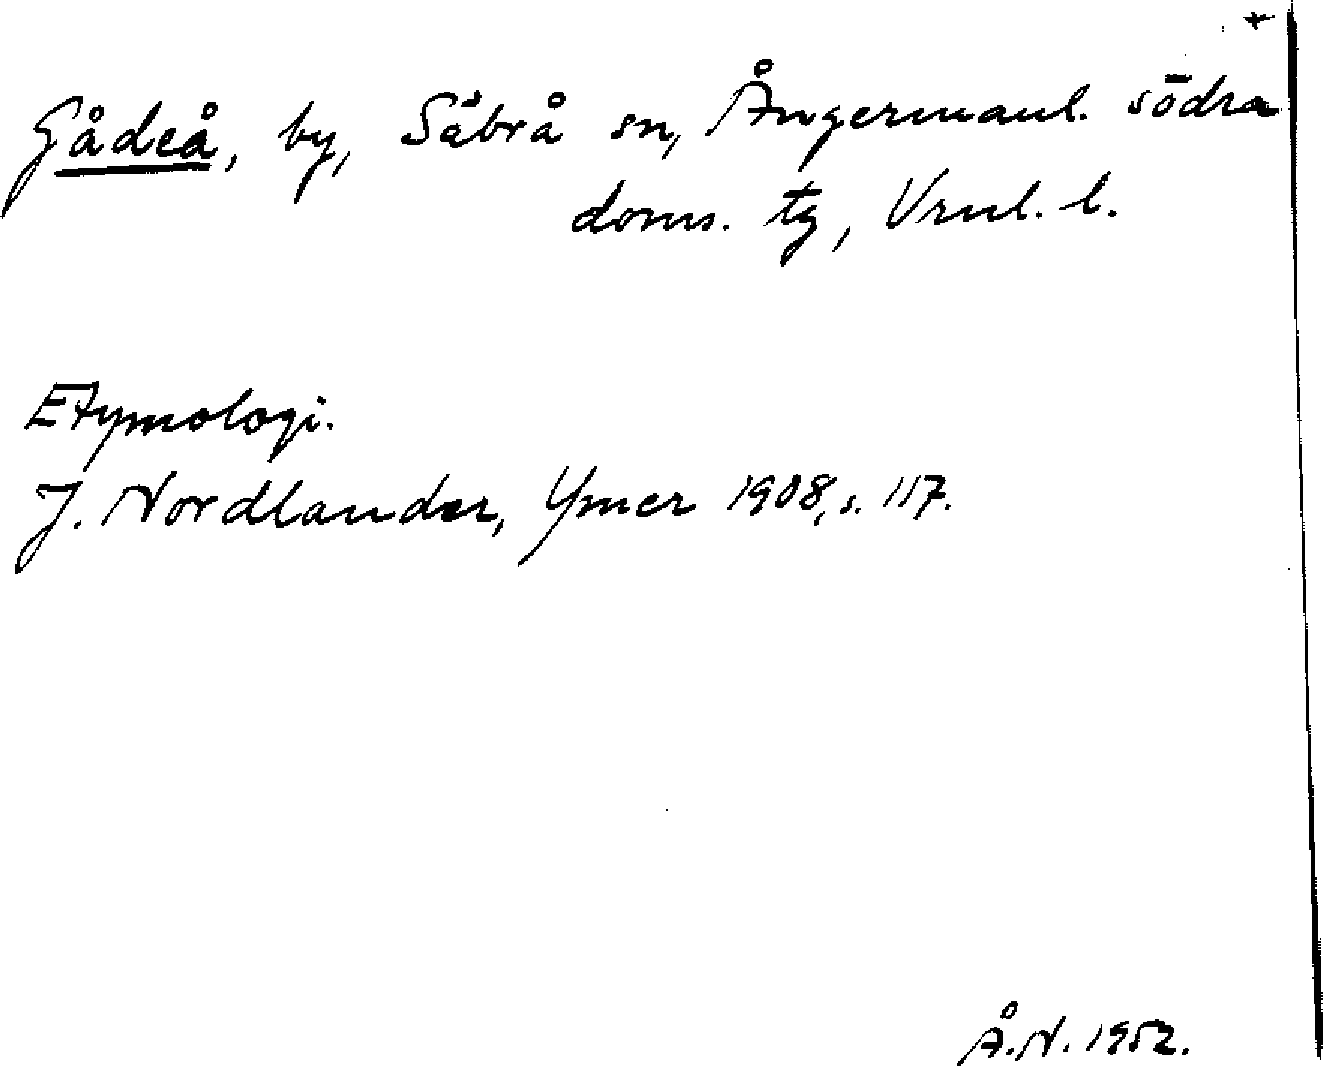 +
Gådeå, by, Säbrå sn, Ångermanl. södra
doms. tg, Vrnl. l.
Etymologi.
J. Nordlander, Ymer 1908, s. 117.
Å.N. 1952.